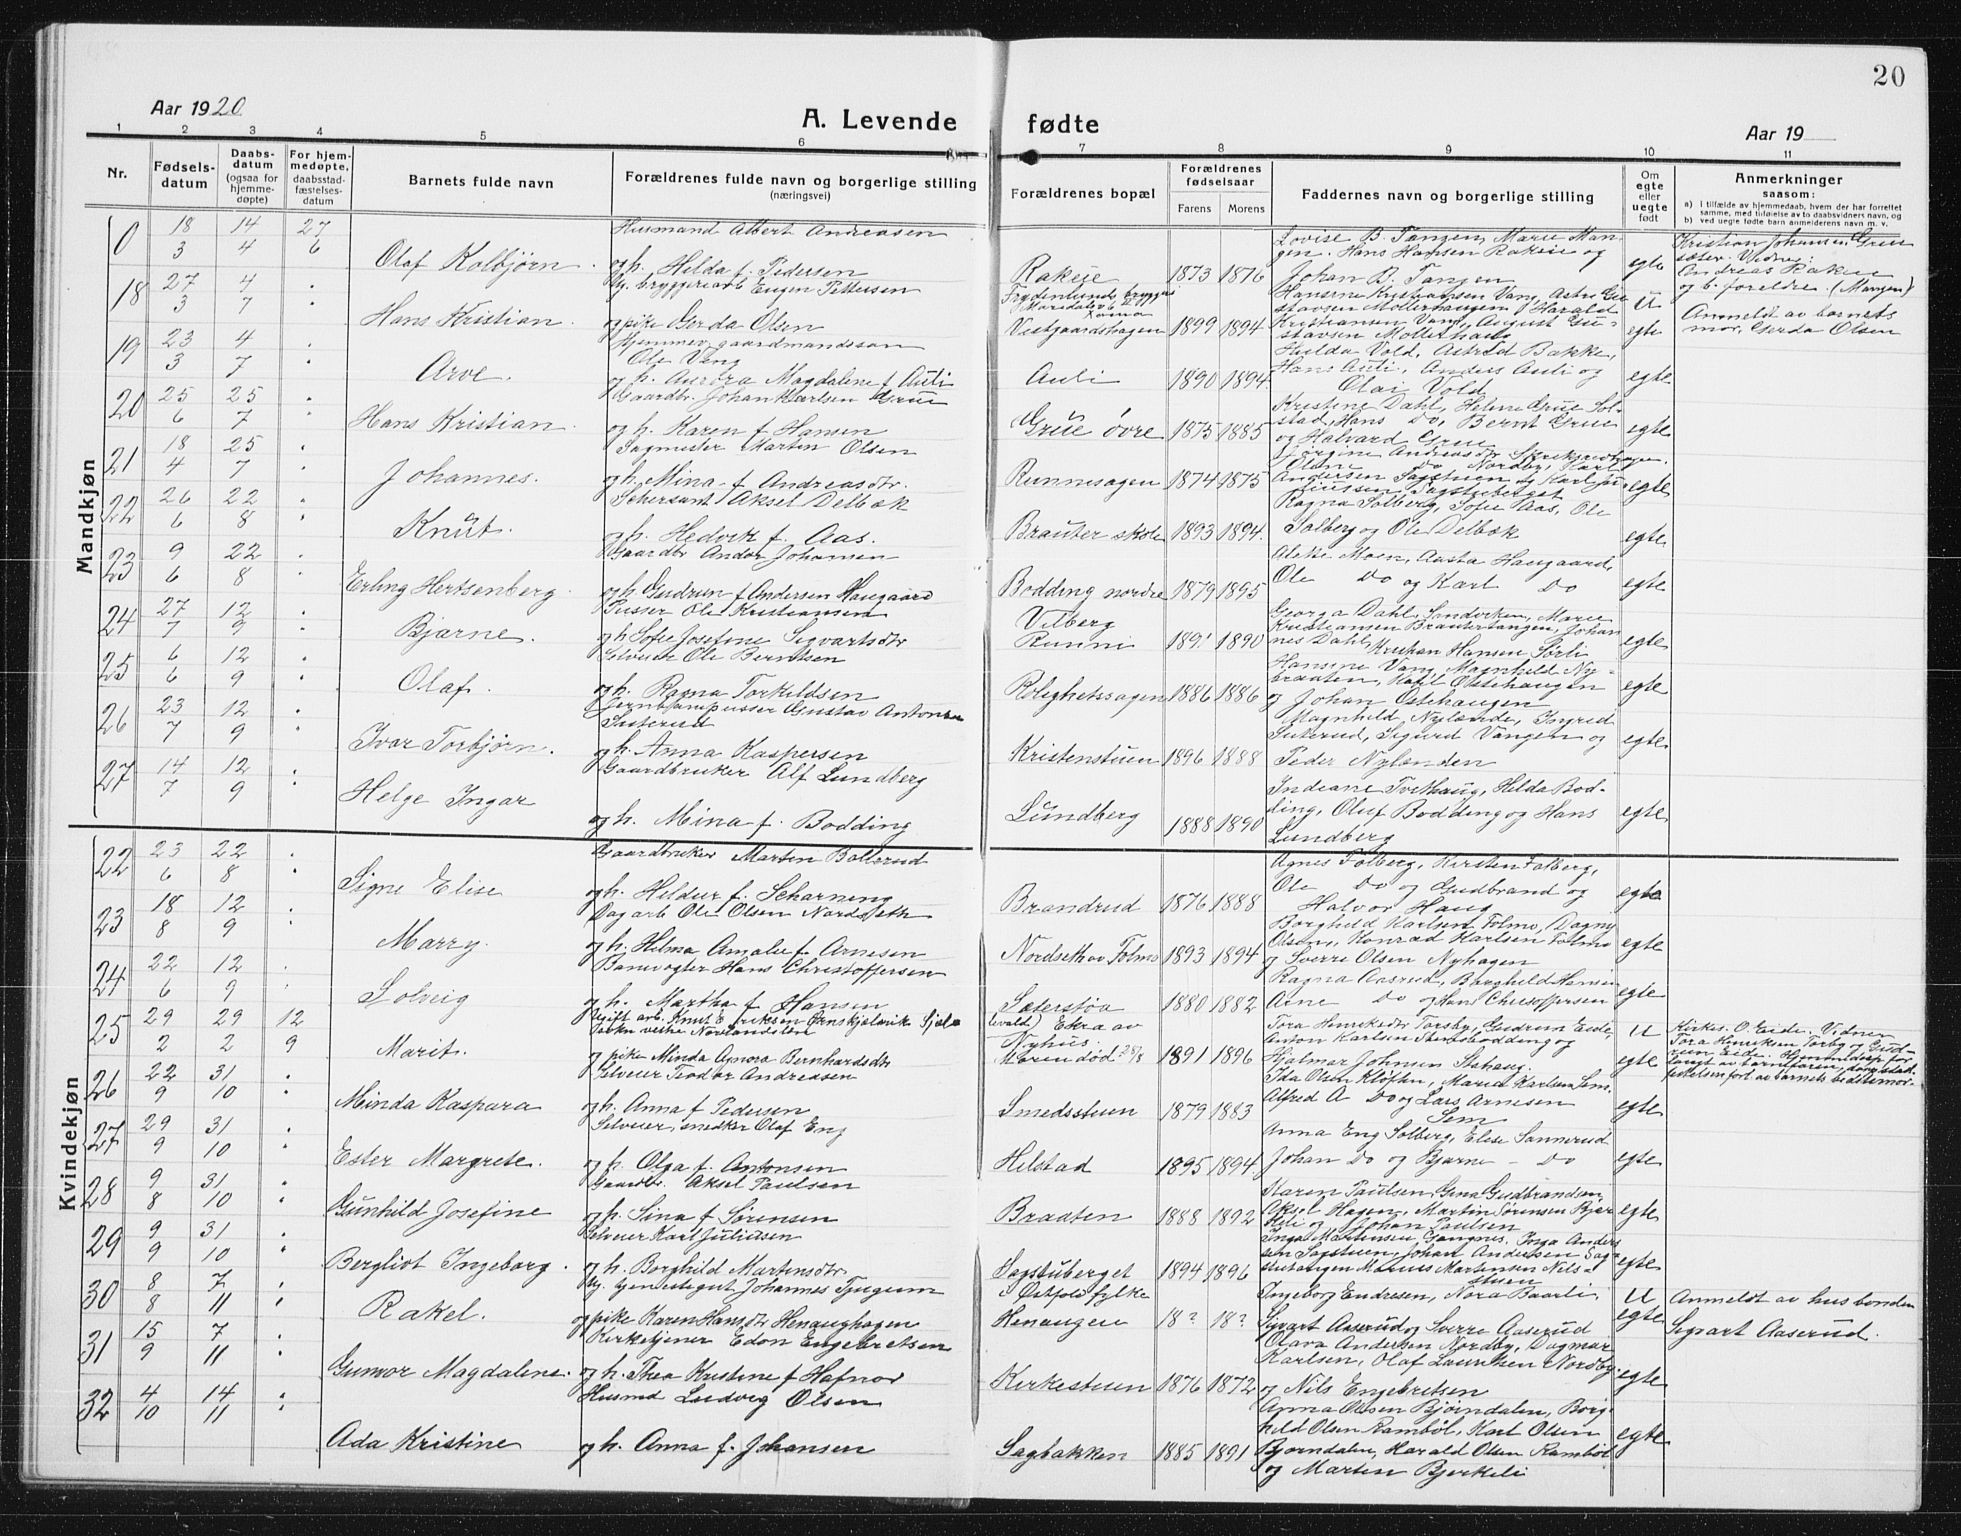 20
Aar 1920
A. Levende fødte
Aar 19
1 2 3 4 5 6 7 8 9 10 11
Nr.
Fødsels-datum
Daabs-datum (ogsaa for hjemme-døpte)
For hjem-medøpte, daabsstad-fæstelses-datum
Barnets fulde navn
Forældrenes fulde navn og borgerlige stilling (næringsvei)
Forældrenes bopæl
Forældrenes fødselsaar
Farens Morens
Faddernes navn og borgerlig stilling
Om egte eller uegte født
Anmerkninger saasom:
a) i tilfælde av hjemmedaab, hvem der har forrettet samme, med tilføielse av to daabsvidners navn, og
b) ved uegte fødte barn anmelderens navn m. v.
Mandkjøn
0 18/3 14/4 27/6 Olaf Kolbjørn.
Husmand Albert Andreasen
og h. Hilda f. Pedersen
Rakeie 1873 1876
Lovise B. Tangen, Marie Man-
gen. Hans Hansen Rakeie og
Johan B. Tangen
egte
Kristian Johansen Grue
sæter. Vidner:
Andreas Rakeie
og b. foreldre. (Mangen)
18 27/3 4/7 Hans Kristian.
Ug. bryggeriarb Eugen Pettersen
og pike Gerda Olsen
Vestgaardshagen 1899 1894
u
egte
Anmeldt av barnets
mor, Gerda Olsen
19 23/3 4/7 Arve.
hjemmev. gaardmandssøn
Ole Vang
og h. Aurora Magdalene f Auli
Auli 1890 1894
Hulda Vold, Astrid Bakke,
Hans Auli, Anders Auli og
Olai Vold
egte
20 25/6 25/7 Hans Kristian.
Gaardbr. Johan Karlsen Grue
og h. Karen f Hansen
Grue øvre 1875 1885
Kristine Dahl, Helene Grue Sol-
stad, Hans Do, Bernt Grue
og Halvard Grue
egte
21 18/4 25/7 Johannes.
Sagmester Martin Olsen
og h. Mina f Andreasdtr.
Runnesagen 1874 1875
egte
22 26/6 22/8 Knut.
Schersant Aksel Delbæk
og h. Hedvik f. Aas.
Brauter skole 1893 1894.
Ragna Solberg, Sofie Aas, Ole
Solberg og Ole Delbæk
egte
23 9/6 22/8 Erling Hertsenberg.
Gaardbr Andor Johansen
og h Gudrun f Andersen Haugaard
Bodding nordre 1879 1895
Aleke Moen, Aasta Haugaard,
Ole Do og Karl Do
egte
24 27/7 12/9 Bjarne.
Pusser Ole Kristiansen
og h Sofie Josefine Sigvartsdtr
Vilberg
Runni 189' 1890
Georga Dahl, Sandviken, Marie
Kristiansen Brautertangen, Johan
nes Dahl, Kristian Hansen Sørli
egte
25 6/6 12/9 Olaf.
Selveier Ole Berntsen
og h. Ragna Torkildsen
Rolighetssagen 1886 1886
Hansine Vang, Magnhild Ny-
braaten, Karl Ostehaugen
og Johan Ostehaugen
egte
26 23/7 12/9 Ivar Torbjørn.
Jernbanepusser Gustav Antonsen
Sæterud
og h. Anna Kaspersen
Kristenstuen 1896 1888
Magnhild Nylænde, Ingrid
Sæterud, Sigurd Vangen og
Peder Nylænden
egte
27 14/7 12/9 Helge Ingar
Gaardbruker Alf Lundberg
og h. Mina f. Bodding
Lundberg 1888 1890
Indiane Tvethaug, Hilda Bod-
ding, Oluf Bodding og Hans
Lundberg
egte
Kvindekjøn
22 23/6 22/8 Signe Elise
Gaardbruker Marten Bollerud
og h. Heldur f. Scharning
Brandrud 1876 1888
Agnes Folberg, Kirsten Folberg,
Ole Do og Gudbrand og
Halvor Haug
egte
23 18/8 12/9 Marry.
Dagarb Ole Olsen Nordseth
og h. Helma Amalie f Arnesen
Nordseth av Folmo 1893 1894
Borghild Karlsen Folmo, Dagny
Olsen, Konrad Karlsen Folmo
og Sverre Olsen Nyhagen
egte
24 22/6 12/9 Solveig
Banevogter Hans Christoffersen
og h. Martha f Hansen
Sæterstøa 1880 1882
Ragna Aasrud, Borghild Hansen
Arne Do og Hans Christoffersen
egte
25 29/2 29/2 12/9 Marit.
og pike Minda Agnora Bernhardsdtr
Ekra av
Nyhus.
Moren død 28/8 1891 1896
Hjalmar Johnsen Stahaug.
u
egte
Kirkes. O. Eide. Vidner
Tora Henriksen Torby og Gud-
run Eide.
26 22/9 31/10 Minda Kaspara
Selveier Teodor Andreasen
og h. Anna f Pedersen
Smedsstuen 1879 1883
Ida Olsen Kløften, Maria Karlsen Sem
Alfred A Do og Lars Arnesen
Sem
egte
27 29/9 31/10 Ester Margrete.
Selveier, snedker Olaf Eng
og h. Olga f. Antonsen
Helstad 1895 1894
Anna Eng Solberg, Elise Sannerud
Johan Do og Bjarne – Do
egte
28 9/8 31/10 Gunhild Josefine
Gaardbr. Aksel Paulsen
og h. Sina f Sørensen
Braaten 1888 1892
Maren Paulsen, Gina Gudbrandsen,
Aksel Hagen, Martin Sørensen Bjer
keli og Johan Paulsen
egte
29 9/9 31/10 Bergliot Ingeborg.
Selveier Karl Juliusen
og h. Borghild Martensdtr
Sagstuberget 1894 1896
Inga Martensen Gangnes, Inga Anders
sen Sagstuen, Johan Andersen Sag-
stuhaugen Marius Martensen Nils-
stuen
egte
30 8/8 7/11 Rakel.
Ug. tjenestegut Johannes Tjugum
og pike Karen Hansdtr Henaughagen
Østfold fylke
Henaugen 18? 18?
Ingeborg Endresen, Nora Baarli,
Sigvart Aaserud og Sverre Aaserud
u
egte
Anmeldt av husbonden
Sigvart Aaserud.
31 15/9 7/11 Gunvor Magdalene.
Kirketjener Edon Engebretsen
og h. Thea Kristine f Hafnor
Kirkestuen 1876 1872
Olava Andersen Nordby, Dagmar
Karlsen, Olaf Lauritsen Nordby
og Nils Engebretsen
egte
32 4/10 14/11 Ada Kristine
Husmd Ludvig Olsen
og h. Anna f. Johansen
Sagbakken 1885 1891
Anna Olsen Bjørndalen, Borg-
hild Olsen Rambøl, Karl Olsen
Bjørndalen, Harald Olsen Rambøl
og Marten Bjerkeli
egte